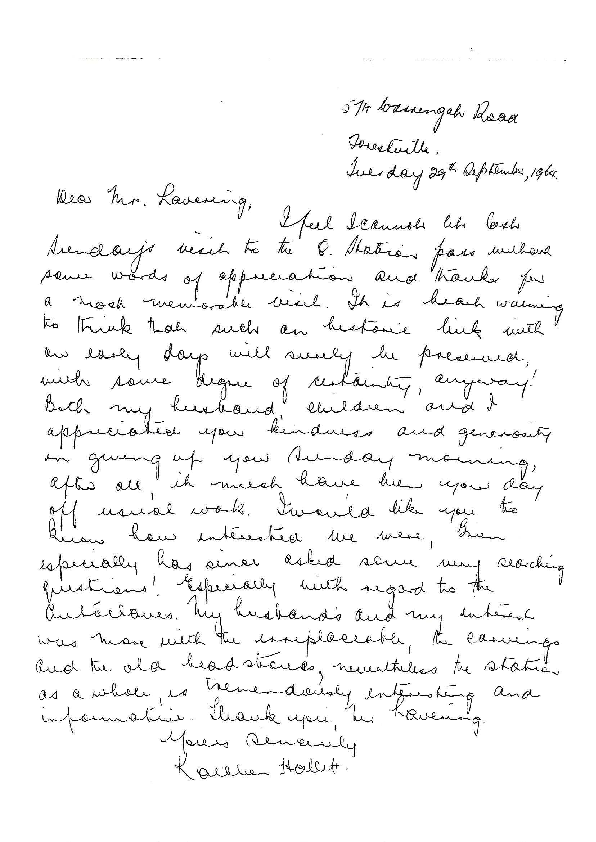 Warrengah Road
Forestville.
Tuesday 29th September, 196
Dear Mr. Lavering,
I feel I cannot let last
Sunday's visit to the Q. Station pass without
some words of appreciation and thanks for
a most memorable visit. It is heart warming
to think that such an historic link with
our early days will surely be preserved,
with some degree of certainty, anyway!
Both my husband, children and I
appreciated your kindness and generosity
in giving up your Sunday morning,
after all, it must have been your day
off usual work. I would like you to
know how interested we were,
especially has since asked some very searching
questions! Especially with regard to the
Autoclaves. My husband's and my interest
was more with the irreplaceable, the carvings
and the old headstones, nevertheless the station
as a whole, is tremendously interesting and
informative. Thank you, Mr Lavering.
Yours Sincerely
Hollett.